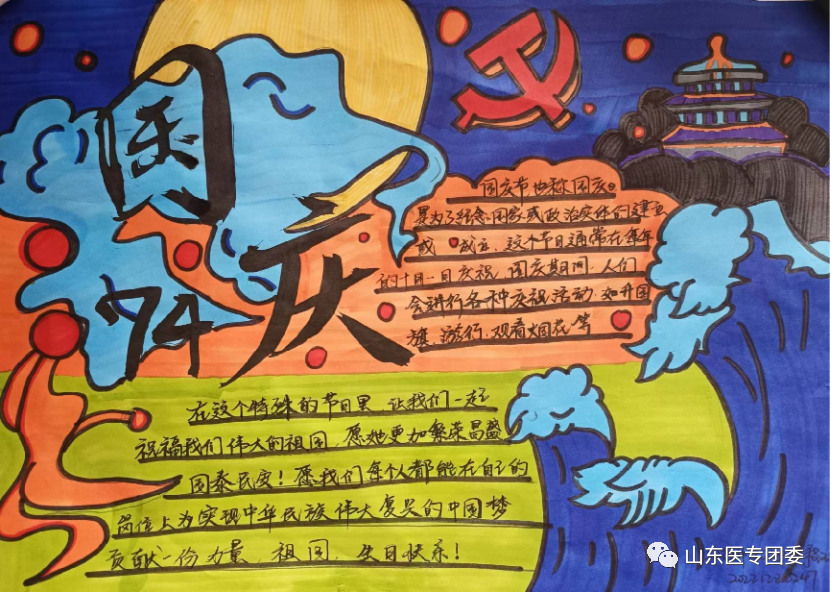 国庆
74
国庆节也称国庆日
是为了纪念国家或政治实体们建立
或成立、这个节日通常在每年
的十月一日庆祝,国庆期间、人们
会进行各种庆祝活动、如升国
旗、游行、观看烟花等
在这个特殊的节日里、让我们一起
祝福我们伟大的祖国、愿她更加繁荣昌盛、
国泰民安!愿我们每个人都能在自己的
岗位上为实现中华民族伟大复兴的中国梦
贡献一份力量、祖国、生日快乐!
山东医专团委